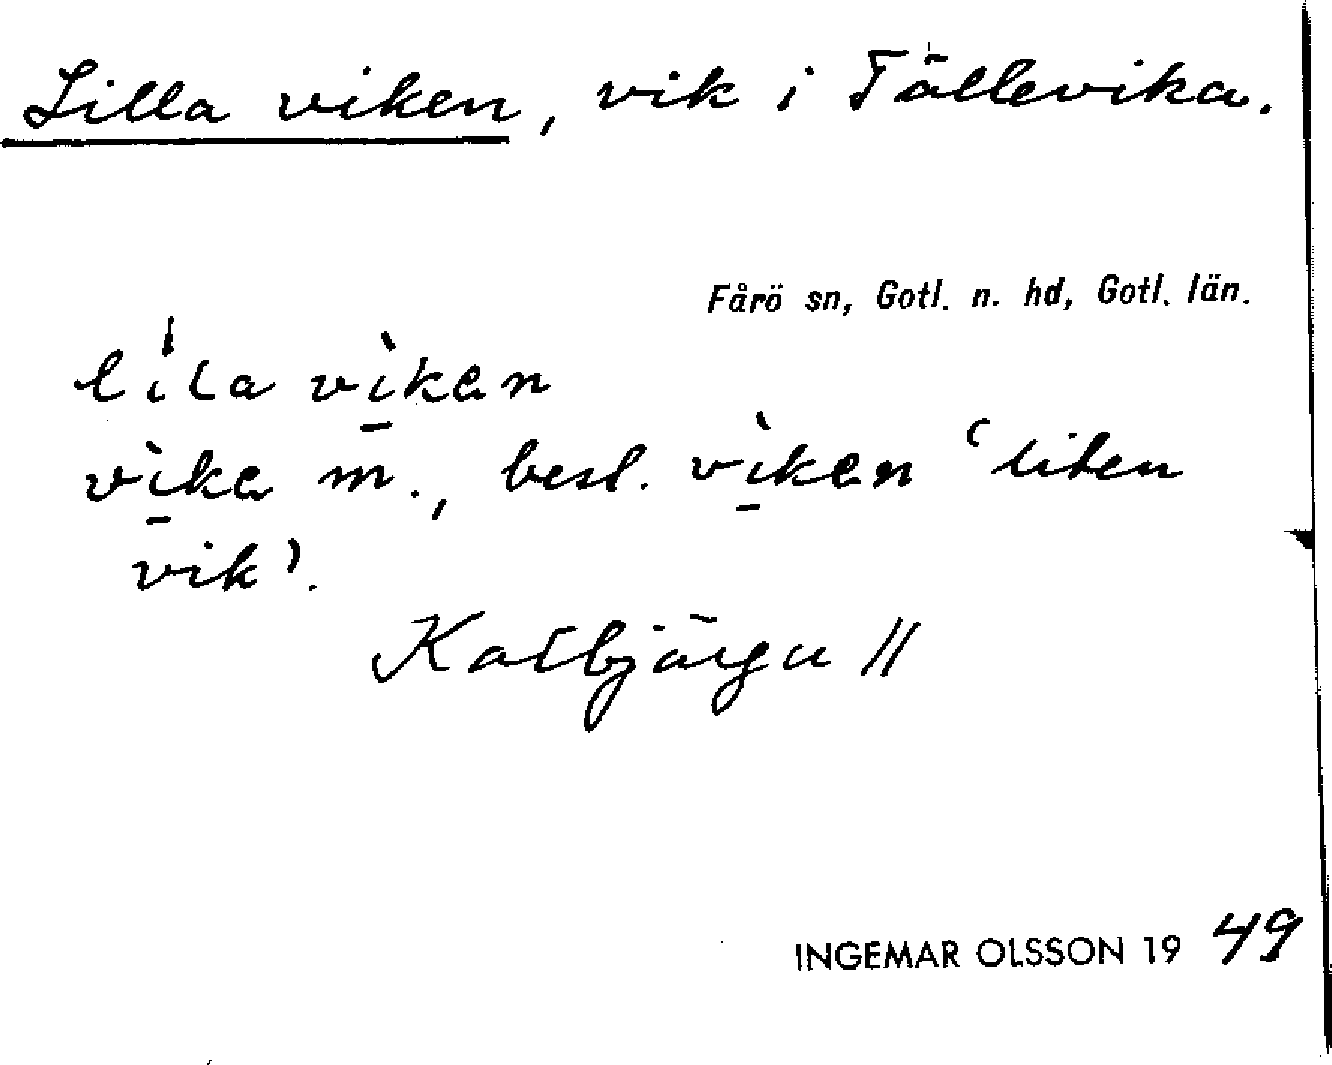 Lilla viken, vik i Tällevika.
Fårö sn, Gotl. n. hd, Gotl. län.
lila vikan
vika m., best. vikan ‘liten
vik’.
Kasbjärgu //
INGEMAR OLSSON 19 49